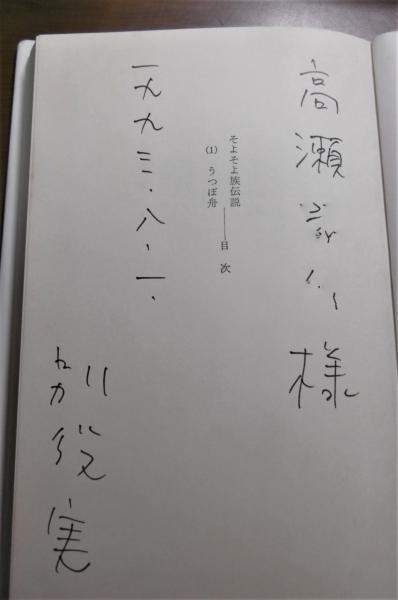 高瀬 様
そよそよ族伝説
(1) うつぼ舟 ―― 目次
一九九三・八・一・
別役実